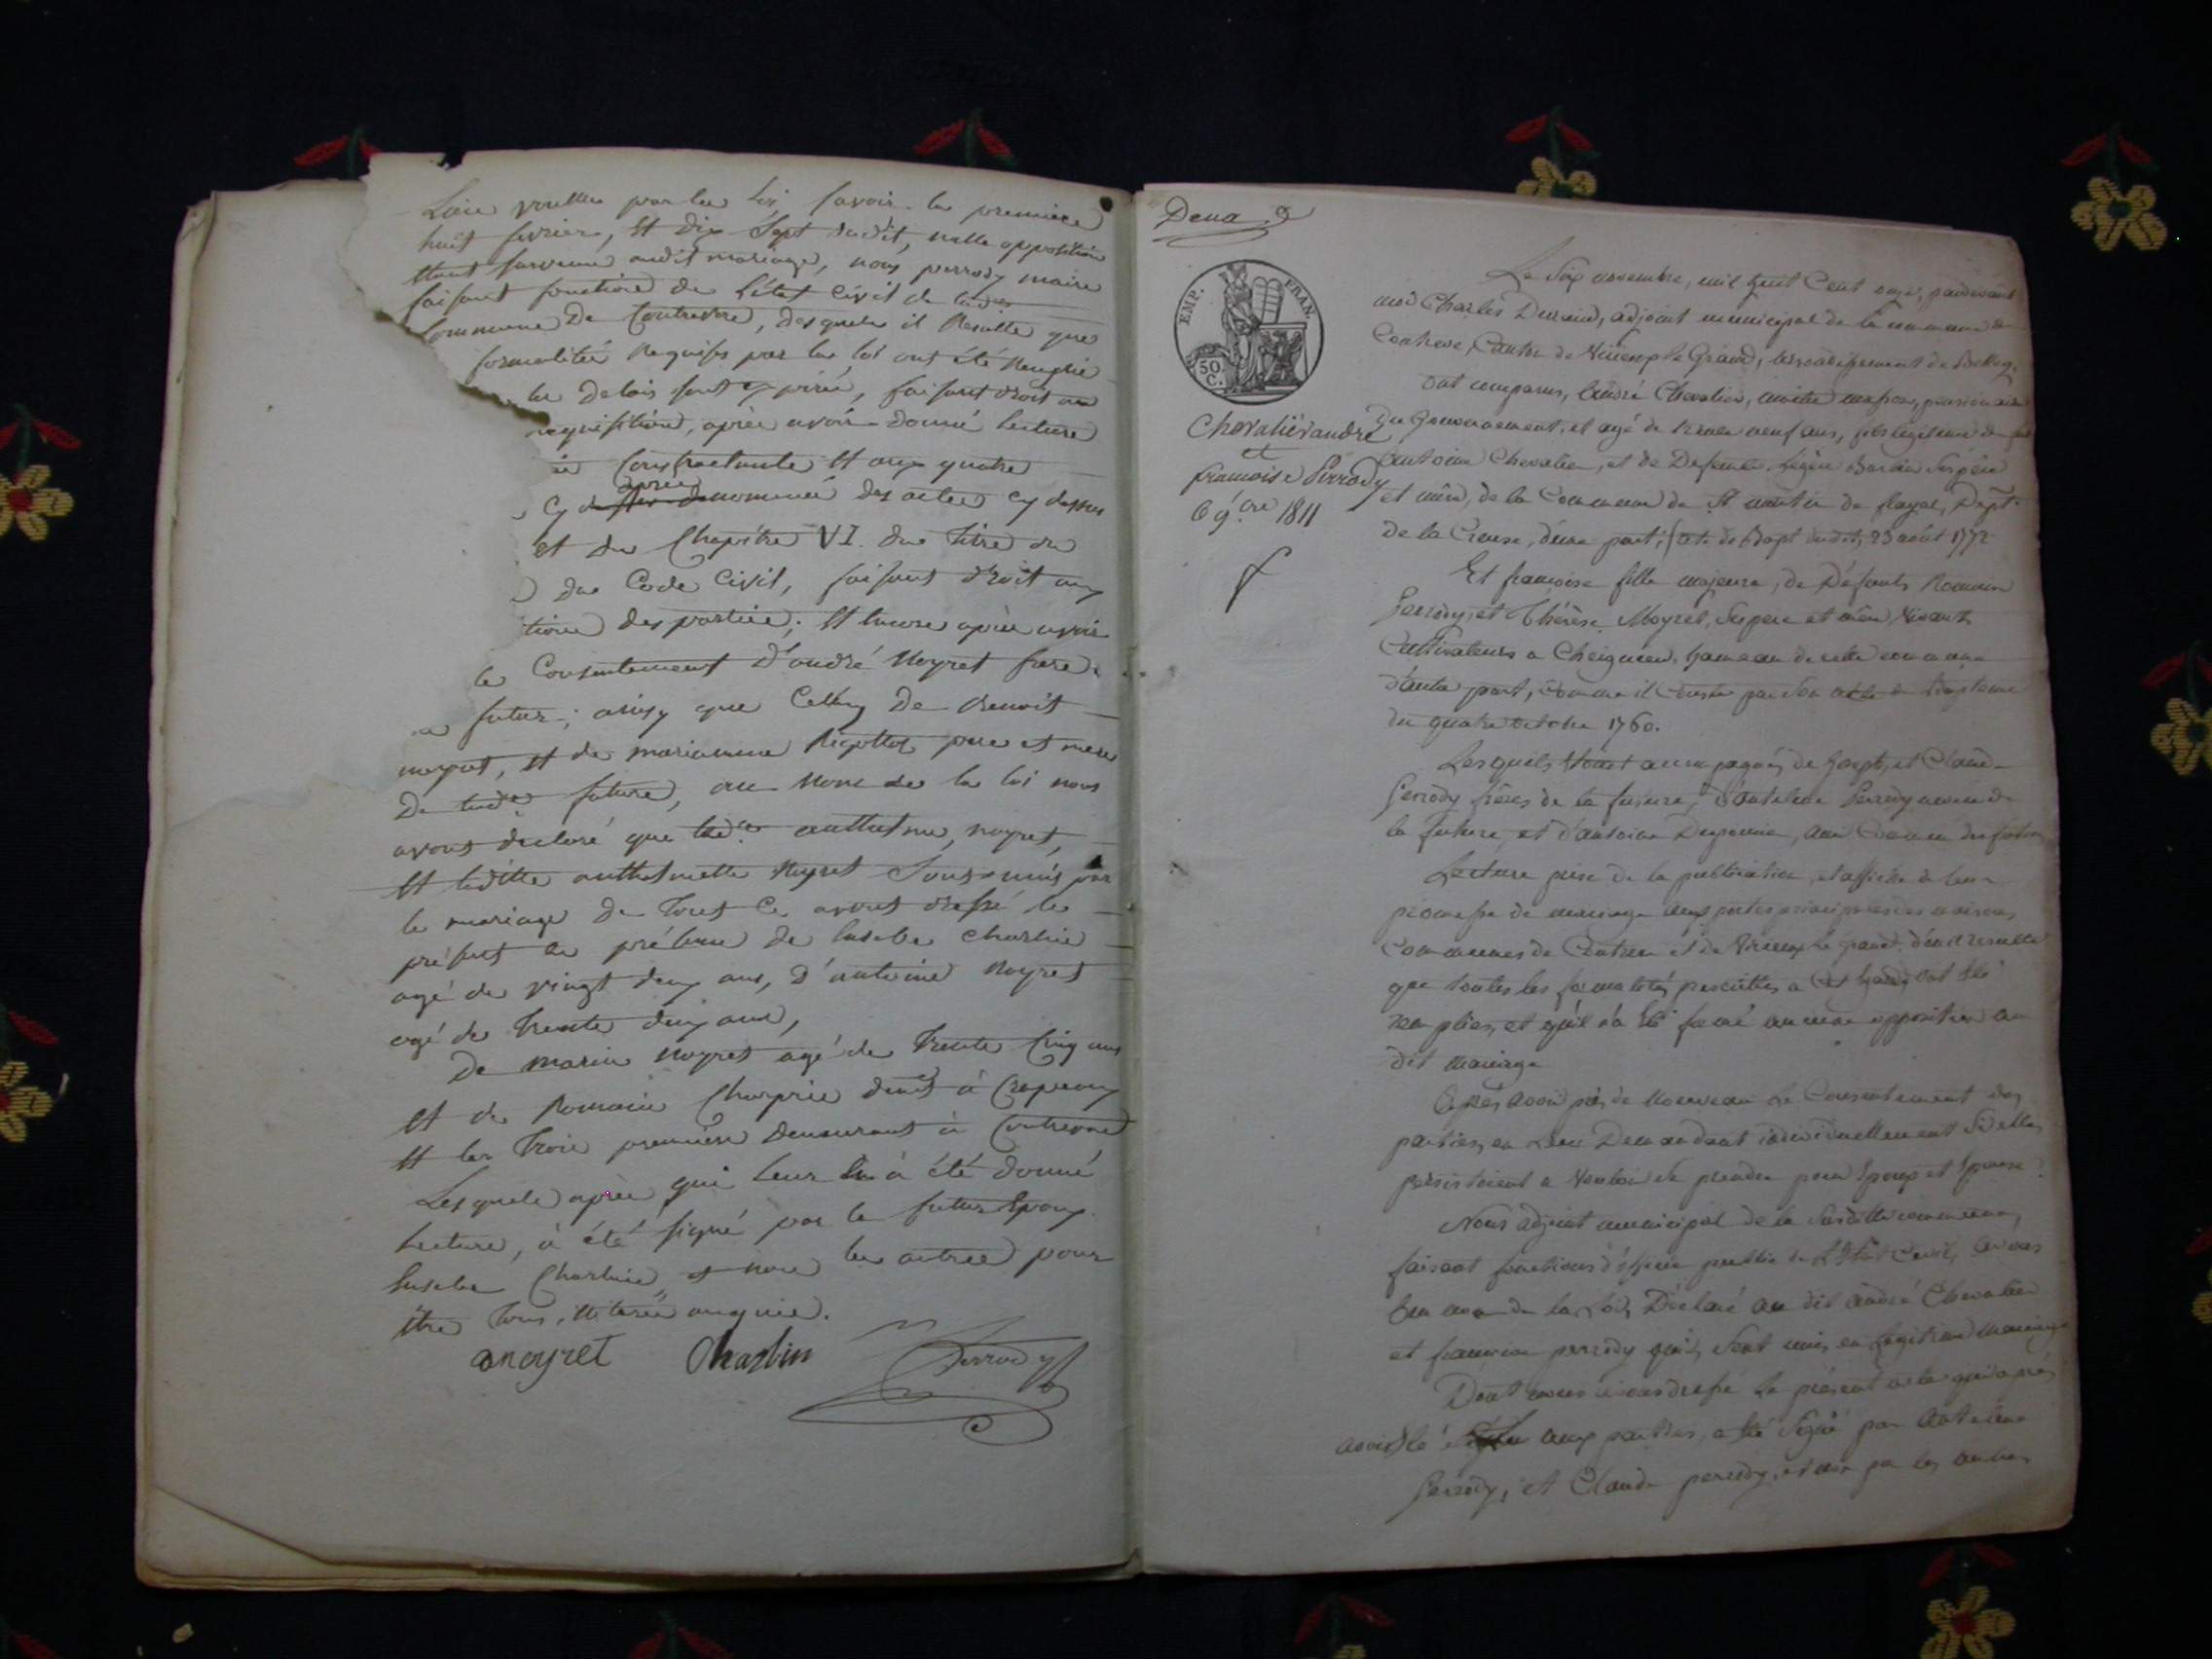 Lieu voulues par la loi, savoir la première
huit fevrier, Et dix Sept dudit, nulle opposition
étant survenue audit mariage, nous perrody maire
faisant fonctions de l'état civil de lad.e
Commune De Contrevoz, desquels il Resulte que
formalitées Requises par la loi ont été Remplie
les delais sont expirée, faisant droit au
requisition, après avoir donné lecture
contractante Et aux quatre
après
Cy dénommée des actes cy dessus
et du Chapitre VI. du Titre du
du Code Civil, faisant droit aux
tions des parties; Et encore après avoir
le Consentement d'andré Moyret frère
futur; ainsy que Celuy De Benoit
moyret, Et de marianne père et mère
De lad.e future, au Nom de la loi nous
avons declaré que led. anthelme moyret,
Et laditte anthelmette Moyret Sont unis par
le mariage De tout Ce avons dressé le
présent en présence de Eusebe Charbin
agé de vingt deux ans, D'antoine Moyret
agé de trente deux ans,
De marin Moyret agé de trente Cinq ans
Et de Romain Charpin demt à Crapeoux
Et les trois premiers demeurant à Contrevoz
Lesquels après qui leur en à été donné
Lecture, à été signé par le futur Epoux
Eusebe Charbin, et non les autres pour
être tous, illiterée enquie.
amoyret Charbin Perrody
Deux
EMP. FRAN.
50. C.
Chevalier andré
et
francoise Perrody
6 9.bre 1811
Le Six novembre, mil huit Cent onze, pardevant
moi Charles Durand, adjoint municipal de la commune de
Contrevoz, Canton de Virieux le Grand, arrondissement de Belley,
ont comparus, André Chevalier, maitre masson, pensionnaire
du Gouvernement, et agé de trente neuf ans, fils legitime de feu
antoine Chevalier, et de Defunte Ses père
et mère, de la Commune de St martin Dept.
de la Creuse, d'une part; (acte de Bapt dudit, 23 août 1772
Et françoise fille majeure, de Défunts Romain
Perrody, et Thérèse Moyret, Ses pere et mère, vivants
Cultivateurs a Cheignieu, hameau de cette commune
d'autre part, comme il conste par son acte de Baptême
du quatre octobre 1760.
Lesquels étoient accompagnés de Joseph, et Claude
Perrody frères de la future, d'Anthelme Perrody neveu de
la future, et d'antoine ami Commun des futurs
Lecture prise de la publication, et affiche de leur
promesse de mariage aux portes principales des maisons
Communes de Contrevoz et de Virieux le grand, d'ou il resulte
que toutes les formalités prescrittes a Cet égard, ont été
remplies, et qu'il n'a été formé aucune opposition au
dit mariage
Après avoir pris de Nouveau le Consentement des
parties, en Leur Demandant individuellement Si elles
persistoient a vouloir se prendre pour Epoux et Epouse?
Nous adjoint municipal de la Susditte commune,
faisant fonctions d'officier public de l'Etat Civil, avons
au nom de la Loi, Déclaré au dit André Chevalier
et francoise perrody qu'ils Sont unis en Légitime Mariage
Dont nous avons dressé le présent acte qui après
avoir été lu aux parties, a été Signé par Anthelme
Perrody, et Claude perrody, et non par les autres